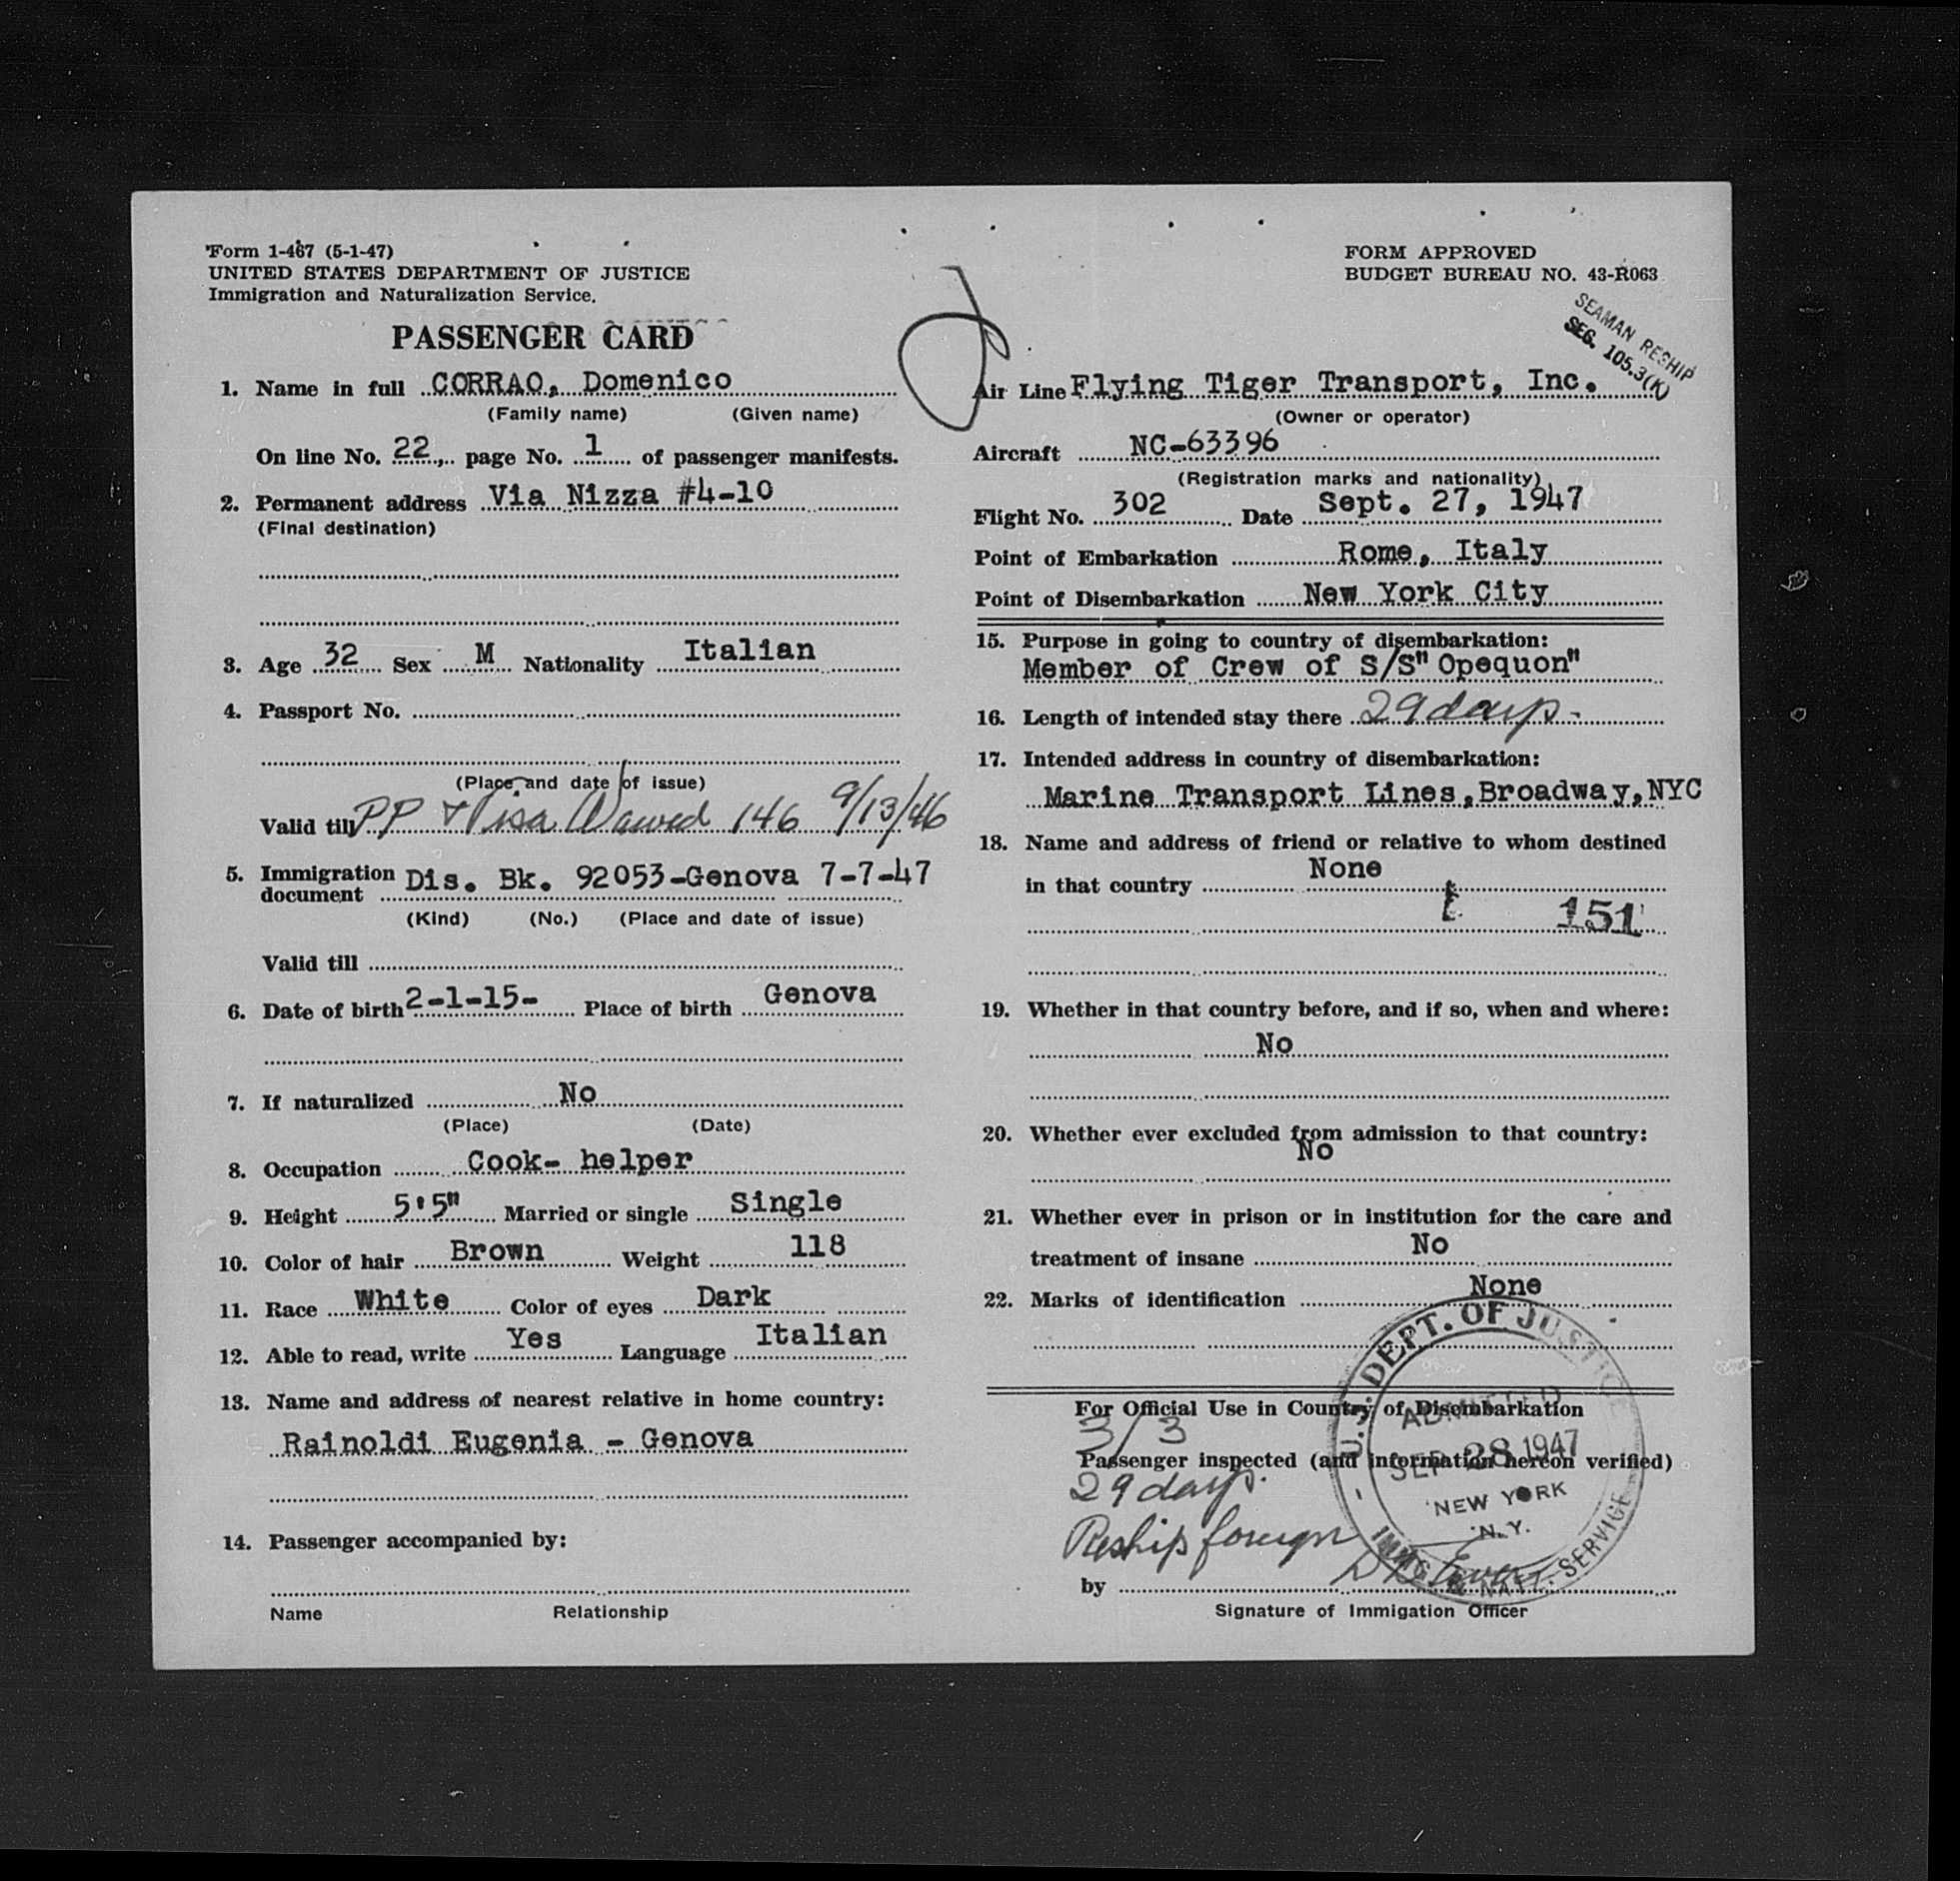 Form 1-467 (5-1-47)
UNITED STATES DEPARTMENT OF JUSTICE
Immigration and Naturalization Service.
PASSENGER CARD
1. Name in full CORRAO, Domenico
(Family name) (Given name)
On line No. 22, page No. 1 of passenger manifests.
2. Permanent address Via Nizza #4-10
(Final destination)
3. Age 32 Sex M Nationality Italian
4. Passport No.
(Place and date of issue)
Valid till PP & Visa Waived 146 9/13/46
5. Immigration document Dis. Bk. 92053-Genova 7-7-47
(Kind) (No.) (Place and date of issue)
Valid till
6. Date of birth 2-1-15- Place of birth Genova
7. If naturalized No
(Place) (Date)
8. Occupation Cook- helper
9. Height 5'5" Married or single Single
10. Color of hair Brown Weight 118
11. Race White Color of eyes Dark
12. Able to read, write Yes Language Italian
13. Name and address of nearest relative in home country:
Rainoldi Eugenia - Genova
14. Passenger accompanied by:
Name Relationship
FORM APPROVED
BUDGET BUREAU NO. 43-R063
SEAMAN RESHIP
SEC. 105.3(K)
Air Line Flying Tiger Transport, Inc.
(Owner or operator)
Aircraft NC-63396
(Registration marks and nationality)
Flight No. 302 Date Sept. 27, 1947
Point of Embarkation Rome, Italy
Point of Disembarkation New York City
15. Purpose in going to country of disembarkation:
Member of Crew of S/S" Opequon"
16. Length of intended stay there 29 days.
17. Intended address in country of disembarkation:
Marine Transport Lines,Broadway,NYC
18. Name and address of friend or relative to whom destined
in that country None
t 151
19. Whether in that country before, and if so, when and where:
No
20. Whether ever excluded from admission to that country:
No
21. Whether ever in prison or in institution for the care and
treatment of insane No
22. Marks of identification None
For Official Use in Country of Disembarkation
3/3
Passenger inspected (and information hereon verified)
29 days.
Reship foreign
by
Signature of Immigation Officer
U.S. DEPT. OF JUSTICE
ADMITTED
SEP 28 1947
NEW YORK
N.Y.
IMMG. & NATZ. SERVICE